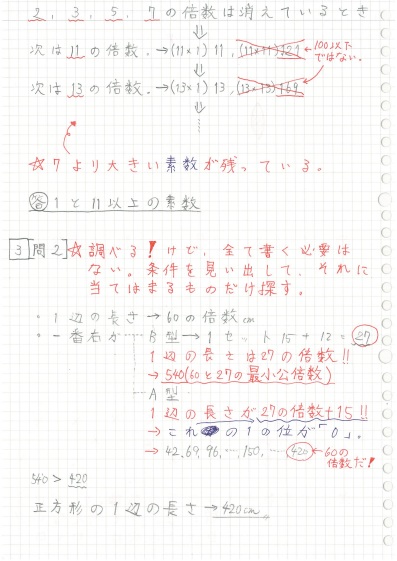 2, 3, 5, 7の倍数は消えているとき
⇓
次は11の倍数.→(11×1) 11, (11×11) 121 ←100以下ではない。
⇓
次は13の倍数.→(13×1) 13, (13×13) 169
⇓
⋮
☆7より大きい素数が残っている。
答 1と11以上の素数
3 問2 ☆調べる!けど、全て書く必要は
ない。条件を見い出して、それに
当てはまるものだけ探す。
・1辺の長さ→60の倍数cm
・一番右が…B型→1セット15+12=27
1辺の長さは27の倍数!!
→540(60と27の最小公倍数)
A型
1辺の長さが27の倍数+15!!
→これの1の位が「0」。
→42,69,96,…,150,…420←60の倍数だ!
540>420
正方形の1辺の長さ→420cm